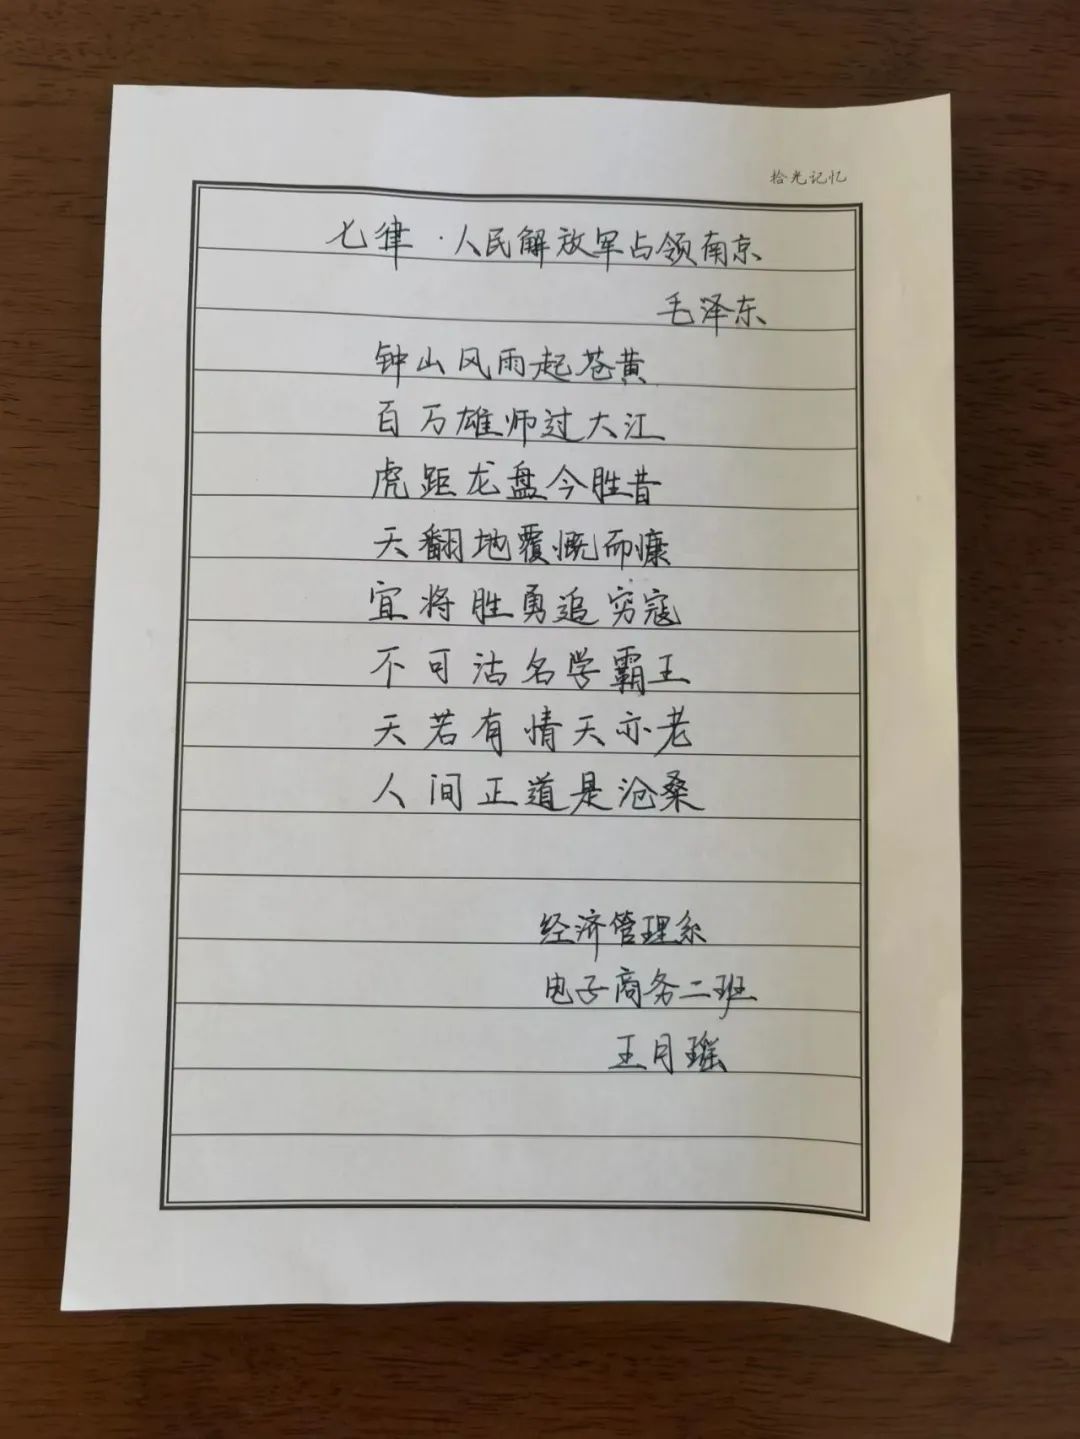 拾光记忆
七律·人民解放军占领南京
毛泽东
钟山风雨起苍黄
百万雄师过大江
虎距龙盘今胜昔
天翻地覆慨而慷
宜将胜勇追穷寇
不可沽名学霸王
天若有情天亦老
人间正道是沧桑
经济管理系
电子商务二班
王月瑶